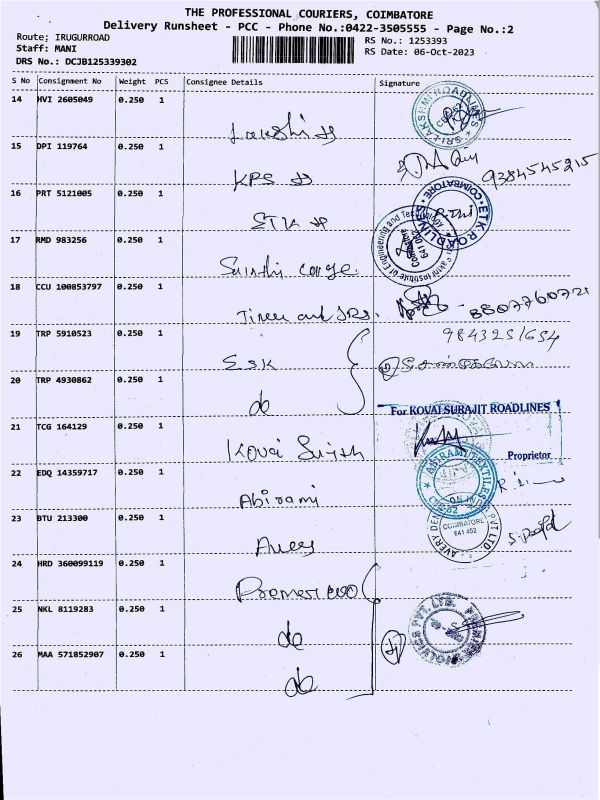 THE PROFESSIONAL COURIERS, COIMBATORE
Delivery Runsheet - PCC - Phone No.:0422-3505555 - Page No.:2
Route: IRUGURROAD
RS No.: 1253393
Staff: MANI
RS Date: 06-Oct-2023
DRS No.: DCJB125339302
S No Consignment No Weight PCS Consignee Details Signature
14 HVI 2605049 0.250 1
15 DPI 119764 0.250 1 KPS
9384545215
16 PRT 5121005 0.250 1 ETK
ETK ROADLINES COIMBATORE
17 RMD 983256 0.250 1
Institute of Engineering and Technology
Coimbatore
641 062
18 CCU 100853797 0.250 1
8807760721
19 TRP 5910523 0.250 1 ESK
9843251654
20 TRP 4930862 0.250 1 do
For KOVAI SURAJIT ROADLINES
21 TCG 164129 0.250 1 Kovai
Proprietor
22 EDQ 14359717 0.250 1 Abirami
ABIRAMI TEXTILES
23 BTU 213300 0.250 1 Avery
COIMBATORE
641 402
PVT LTD
24 HRD 360099119 0.250 1
25 NKL 8119283 0.250 1 do
PVT. LTD.
26 MAA 571852907 0.250 1 do